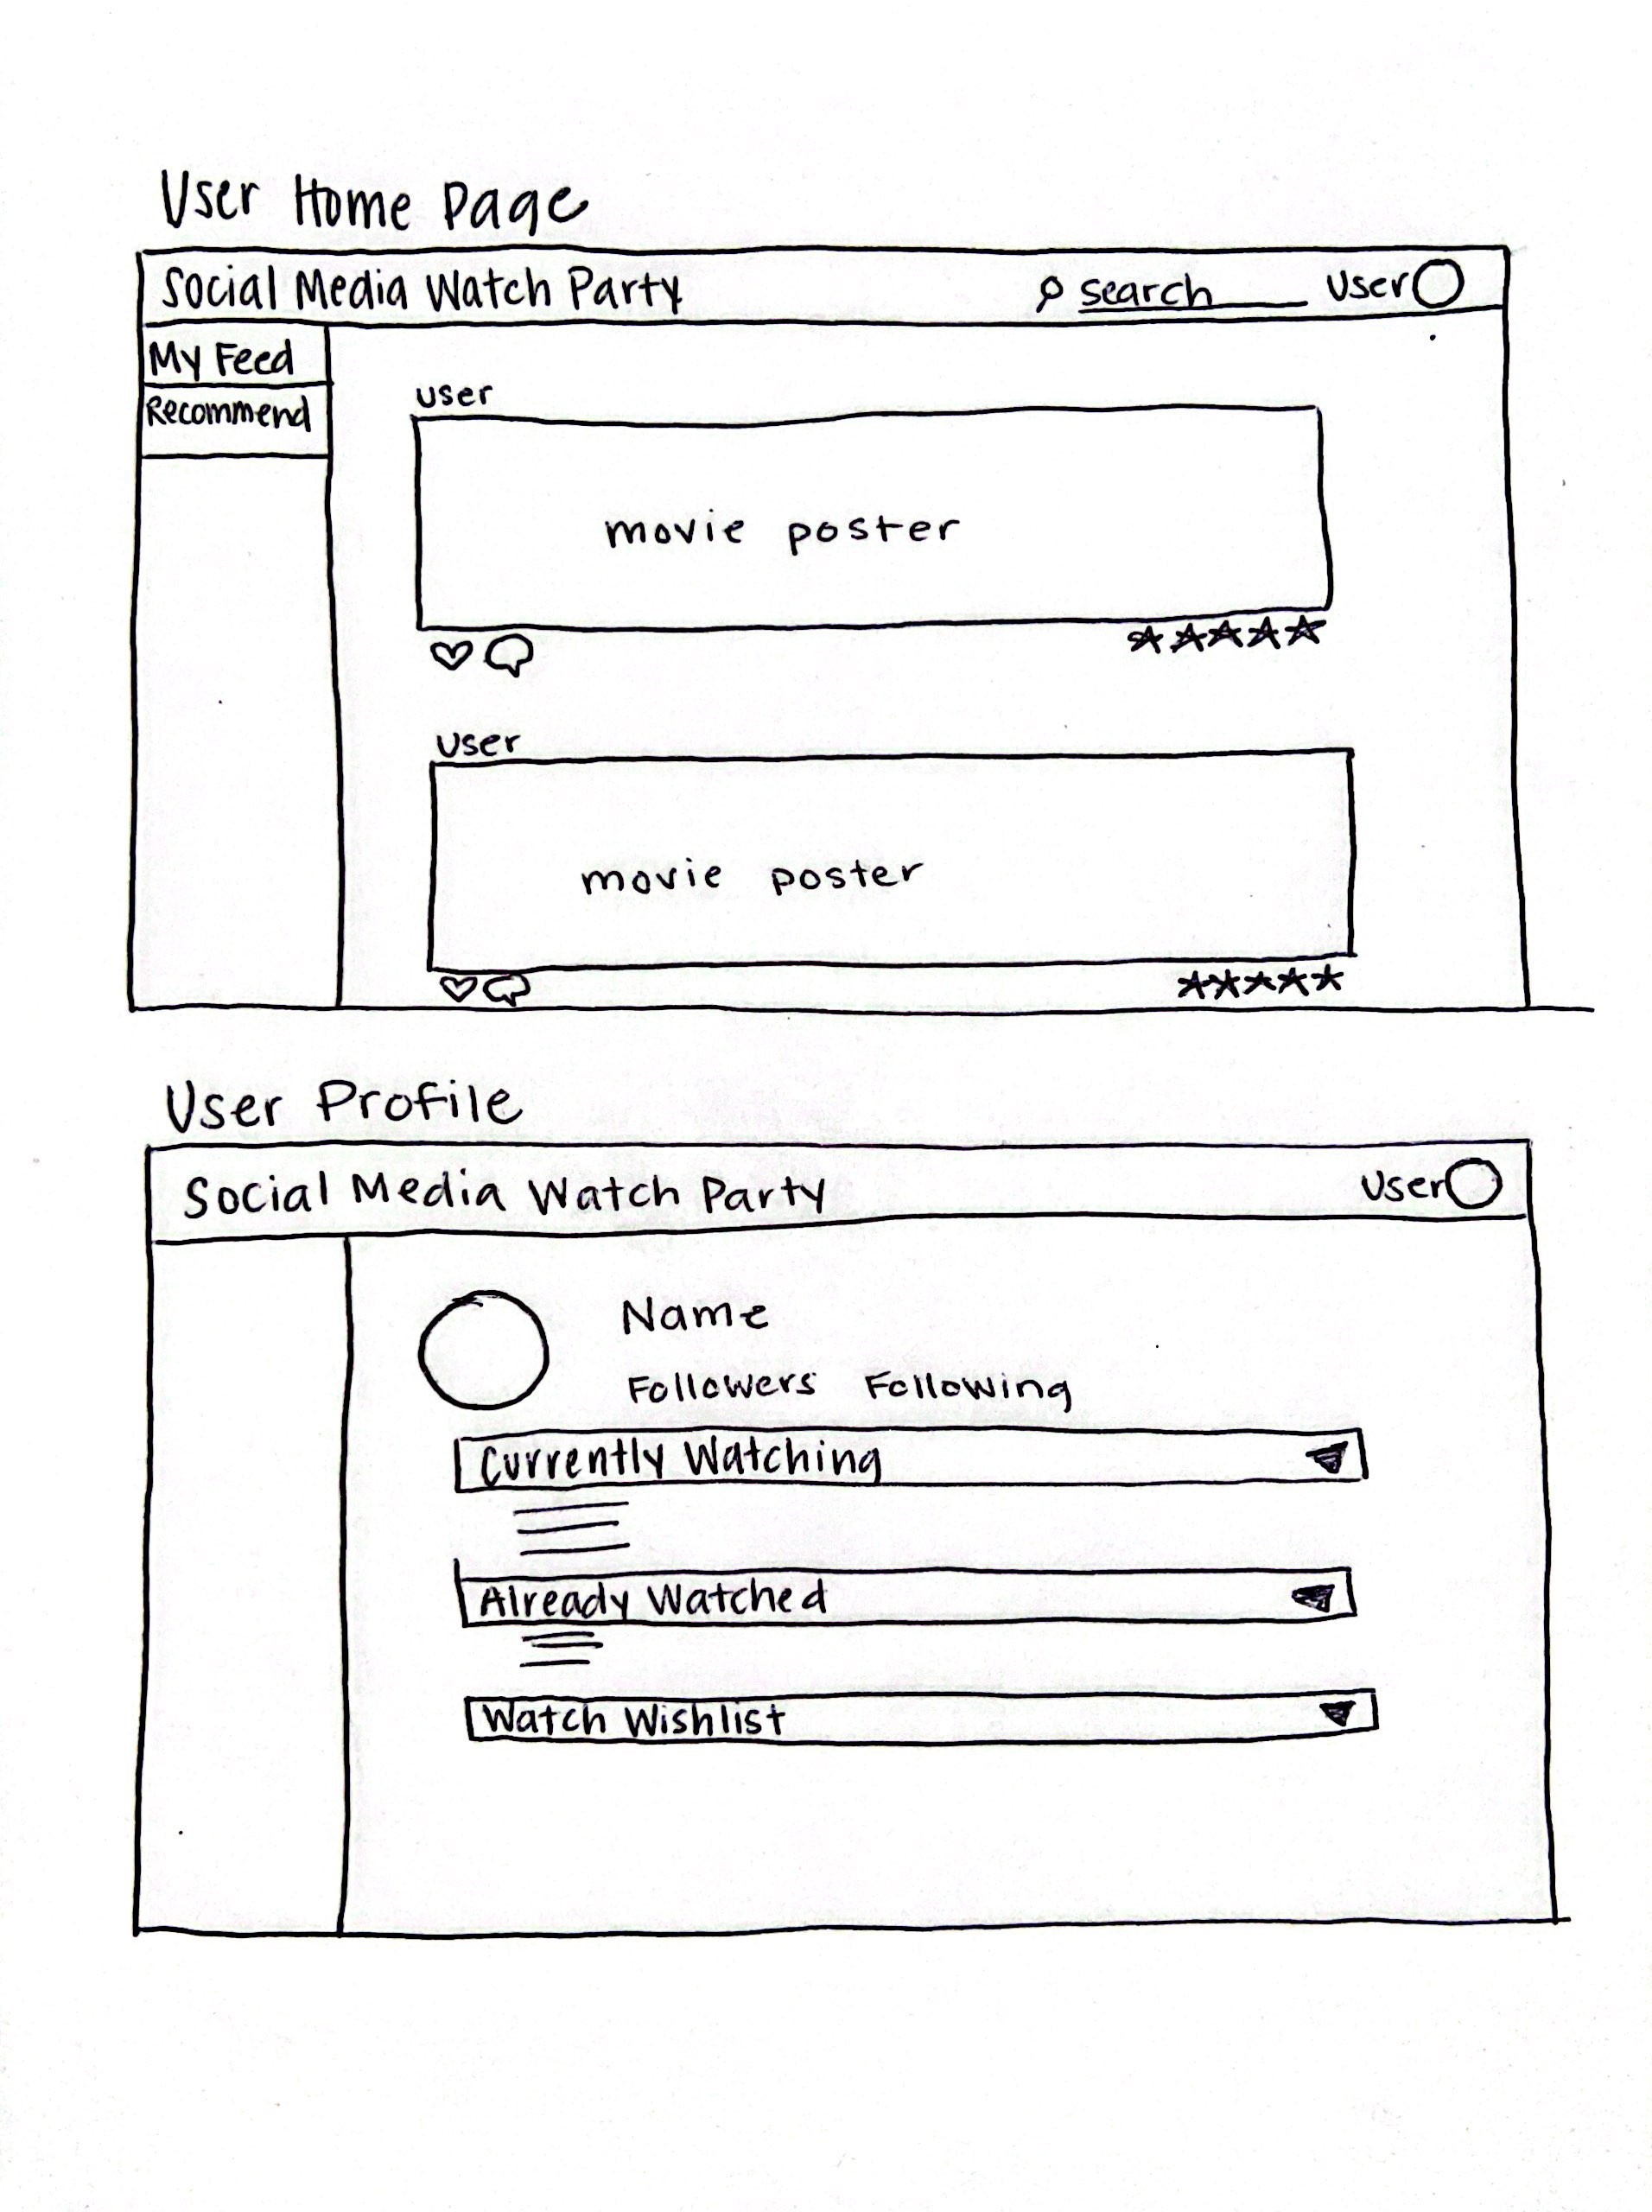 User Home Page
Social Media Watch Party search User
My Feed
Recommend
user
movie poster
user
movie poster
User Profile
Social Media Watch Party User
Name
Followers Following
Currently Watching
Already Watched
Watch Wishlist